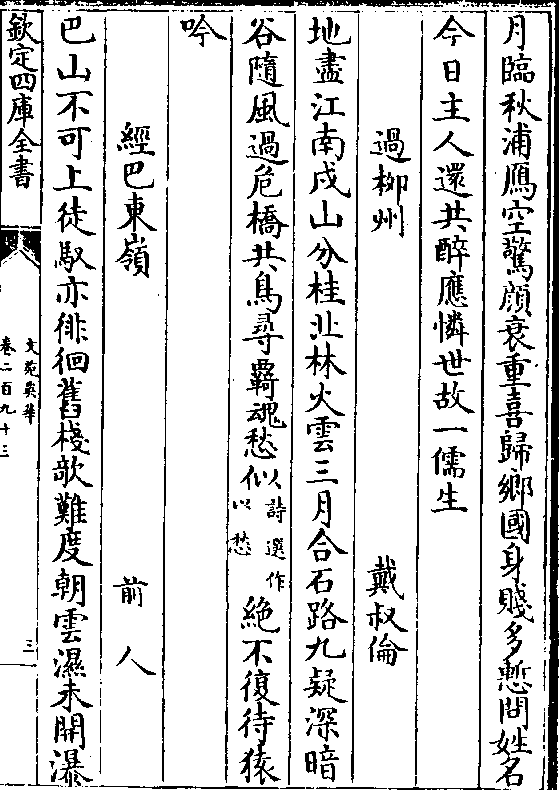 月臨秋浦鴈空驚顔衰重喜歸鄉國身賤多慙問姓名
今日主人還共醉應憐世故一儒生
過柳州 戴叔倫
地盡江南戍山分桂北林火雲三月合石路九疑深暗
谷隨風過危橋共鳥尋覊魂愁似以詩選作以愁絶不復待猿
吟
經巴東嶺 前人
巴山不可上徒馭亦徘徊舊棧歌難度朝雲濕未開瀑
欽定四庫全書
文苑英華
卷二百九十三
三